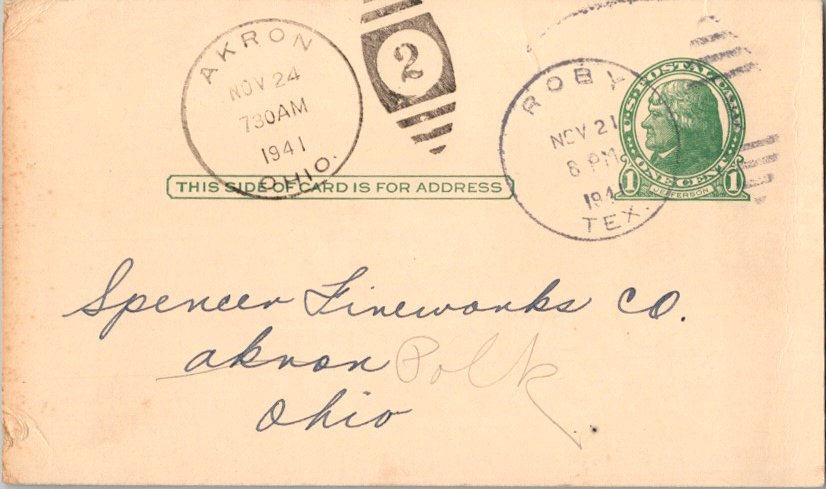 AKRON
NOV 24
730AM
1941
OHIO.
2
ROBY
NOV 21
6 PM
194
TEX.
U.S. POSTAL CARD
ONE CENT
1 JEFFERSON 1
THIS SIDE OF CARD IS FOR ADDRESS
Spencer Fireworks Co.
akron Polk
Ohio